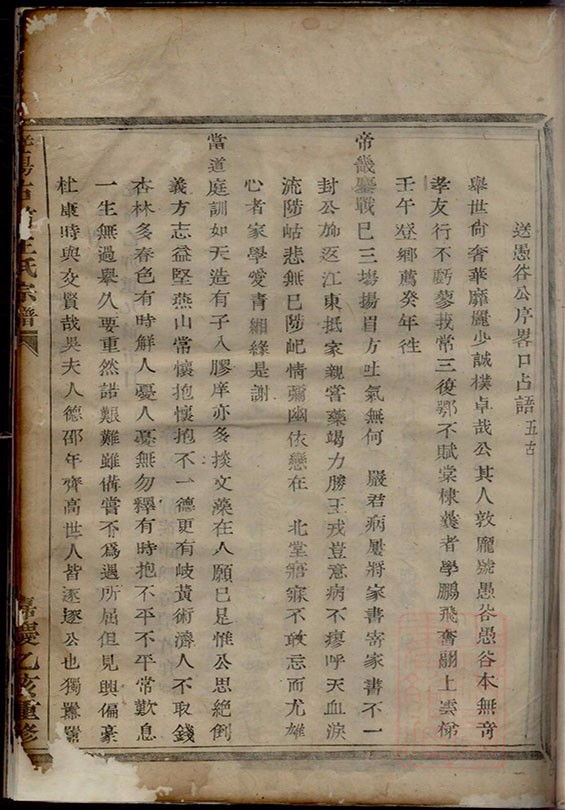 送愚谷公序畧口占語 五古
舉世尚奢華靡麗少誠樸卓哉公其人敦龐號愚谷愚谷本無奇
孝友行不虧蓼莪常三復鄂不賦棠棣義者學鵬飛奮翮上雲梯
壬午登鄉薦癸年往
帝畿鏖戰已三塲揚眉方吐氣無何 嚴君病屢將家書寄家書不一
封公旆返江東抵家親嘗藥竭力勝王戎豈意病不瘳呼天血淚
流陟岵悲無已陟屺情彌幽依戀在 北堂寤寐不敢忘而尤雄
心者家學愛青緗緣是謝
當道庭訓如天造有子入膠庠亦多掞文藻在人願已足惟公思絕倒
義方志益堅燕山常懷抱懷抱不一德更有岐黃術濟人不取錢
杏林多春色有時解人憂人憂無勿釋有時抱不平不平常歎息
一生無過舉久要重然諾艱難雖備嘗不為遇所屈但見興偏豪
杜康時與交賢哉吳夫人德邵年齊高世人皆逐逐公也獨囂囂
王氏宗譜
嘉慶乙亥重修